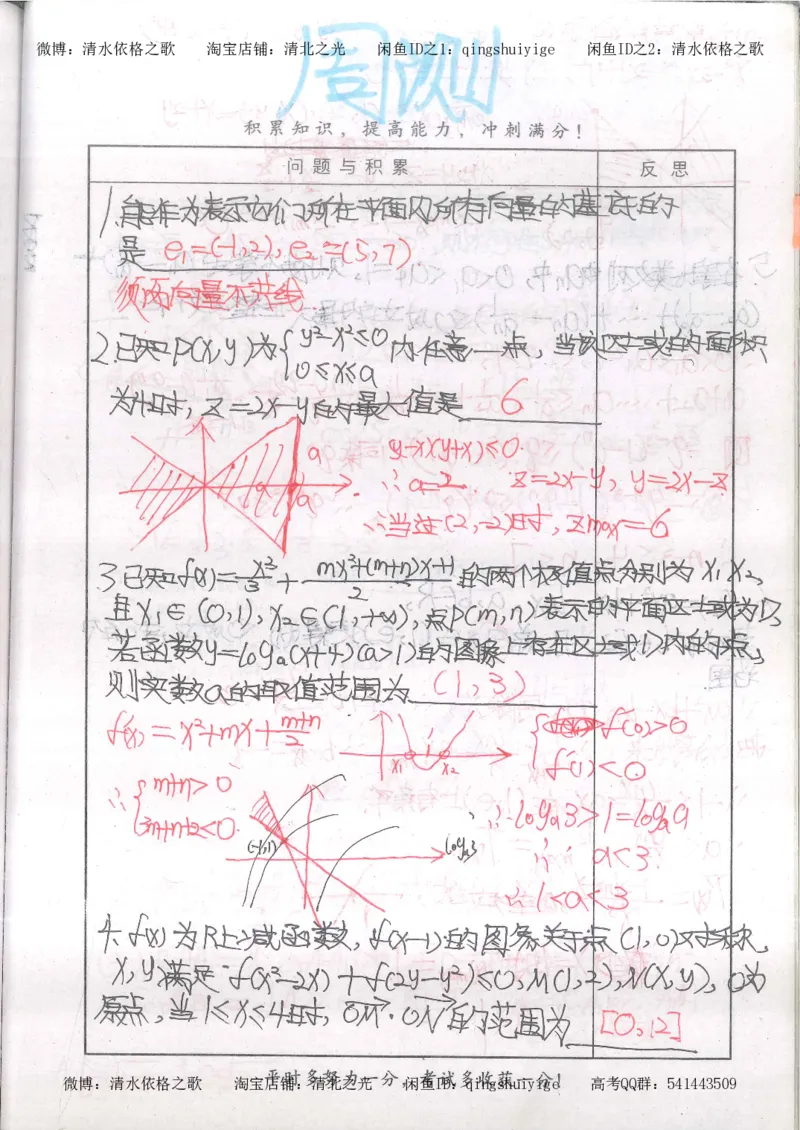 微博：清水依格之歌 淘宝店铺：清北之光 闲鱼ID之1：qingshuiyige 闲鱼ID之2：清水依格之歌
周测
积累知识，提高能力，冲刺满分！
问题与积累 反思
1.能作为表示它们所在平面内所有向量的基底的
是 e₁=(-1,2), e₂=(5,7)
须两向量不共线
2.已知P(x,y)为{y²-x²≤0 0≤x≤a 内任意一点，当该区域的面积
为4时，z=2x-y的最大值是 6
a a a
(y-x)(y+x)≤0
∴a=2 z=2x-y, y=2x-z
∴当过(2,-2)时, zmax=6
3.已知f(x)=x³/3+(mx²+(m+n)x+1)/2的两个极值点分别为x₁,x₂,
且x₁∈(0,1), x₂∈(1,+∞),点P(m,n)表示的平面区域为D,
若函数y=logₐ(x+4)(a>1)的图象上存在区域D内的点,
则实数a的取值范围为 (1,3)
f'(x)=x²+mx+(m+n)/2 x₁ 1 x₂ {f'(0)>0 f'(1)<0
∴{m+n>0 3m+n+2<0
(-1,1) logₐ3
∴logₐ3>1=logₐa
∴a<3
∴1<a<3
4.f(x)为R上减函数, f(x-1)的图象关于点(1,0)对称,
x,y满足f(x²-2x)+f(2y-y²)≤0, M(1,2), N(x,y), O为
原点,当1≤x≤4时, OM·ON的范围为 [0,12]
平时多努力一分，考试多收获一分！
微博：清水依格之歌 淘宝店铺：清北之光 闲鱼ID：qingshuiyige 高考QQ群：541443509